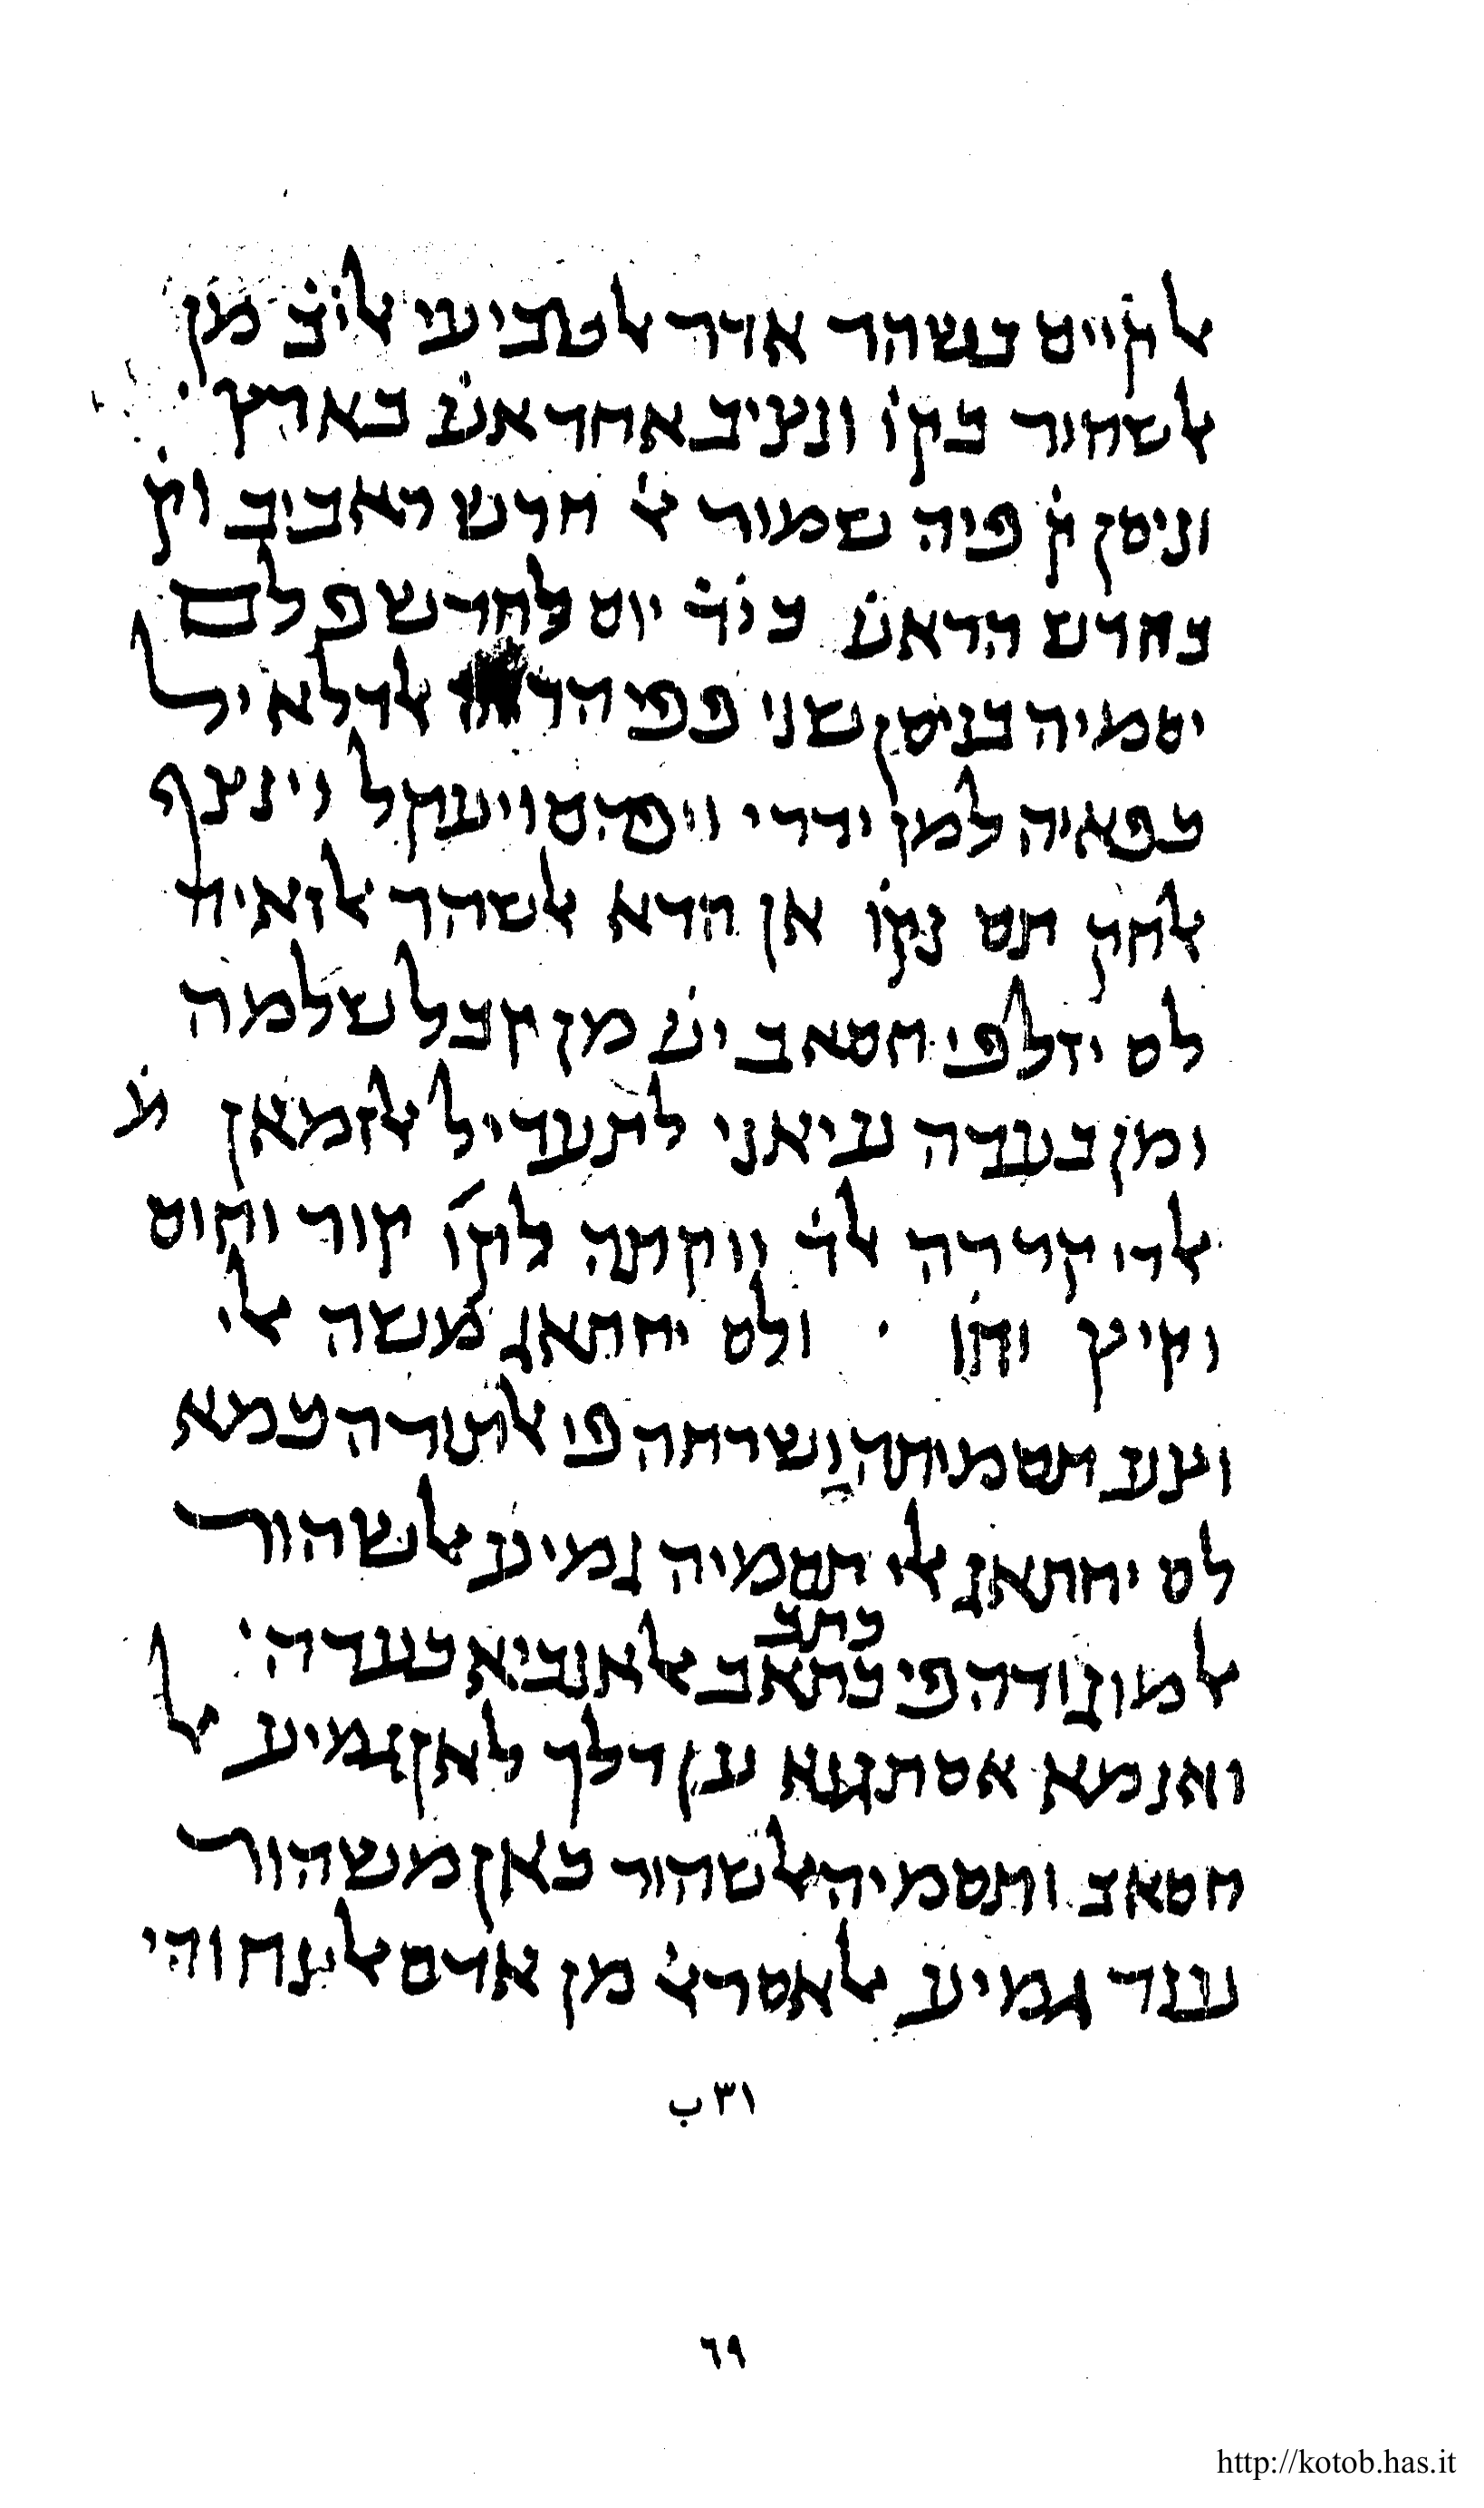 אלקיים כשהר אדר אלטביעי אליב מן
אלשהור כקו ונציב אחד אש כארץ
וניסן ק פיה שמור א חדש האביב וק
בחדש הראש ביד יום לחדש פלם
יסמיה בניסן שני פפי הדא אלדלאיל
כפאיה למן ידרי ויפהם ויעקל וינצף
אלחק תם נקו אן הדא אלשהר אלזאיד
לם יזל פי חסאב יש מן קבל שלמה
ומן בעדה עיאני לתעדיל אלזמאן
אלדי קררה אלד ווקתה לקו קור וחום
וקיץ וחו ולם יחתאג משה אלי
וצע תסמיתה ושרחה פי אלתורה כמא
לם יחתאג אלי תסמיה גמיע אלשהור
כתב
אלמוגודה פי כתאב אלאנביא בעדה
ואנמא אסתגנא ען דלך לאן גמיע אל
חסאב ותסמיה אלשהור כאן משהור
ענד גמיע אלאסרא מן אדם אלי נח והי
١٣ب
٦١
http://kotob.has.it